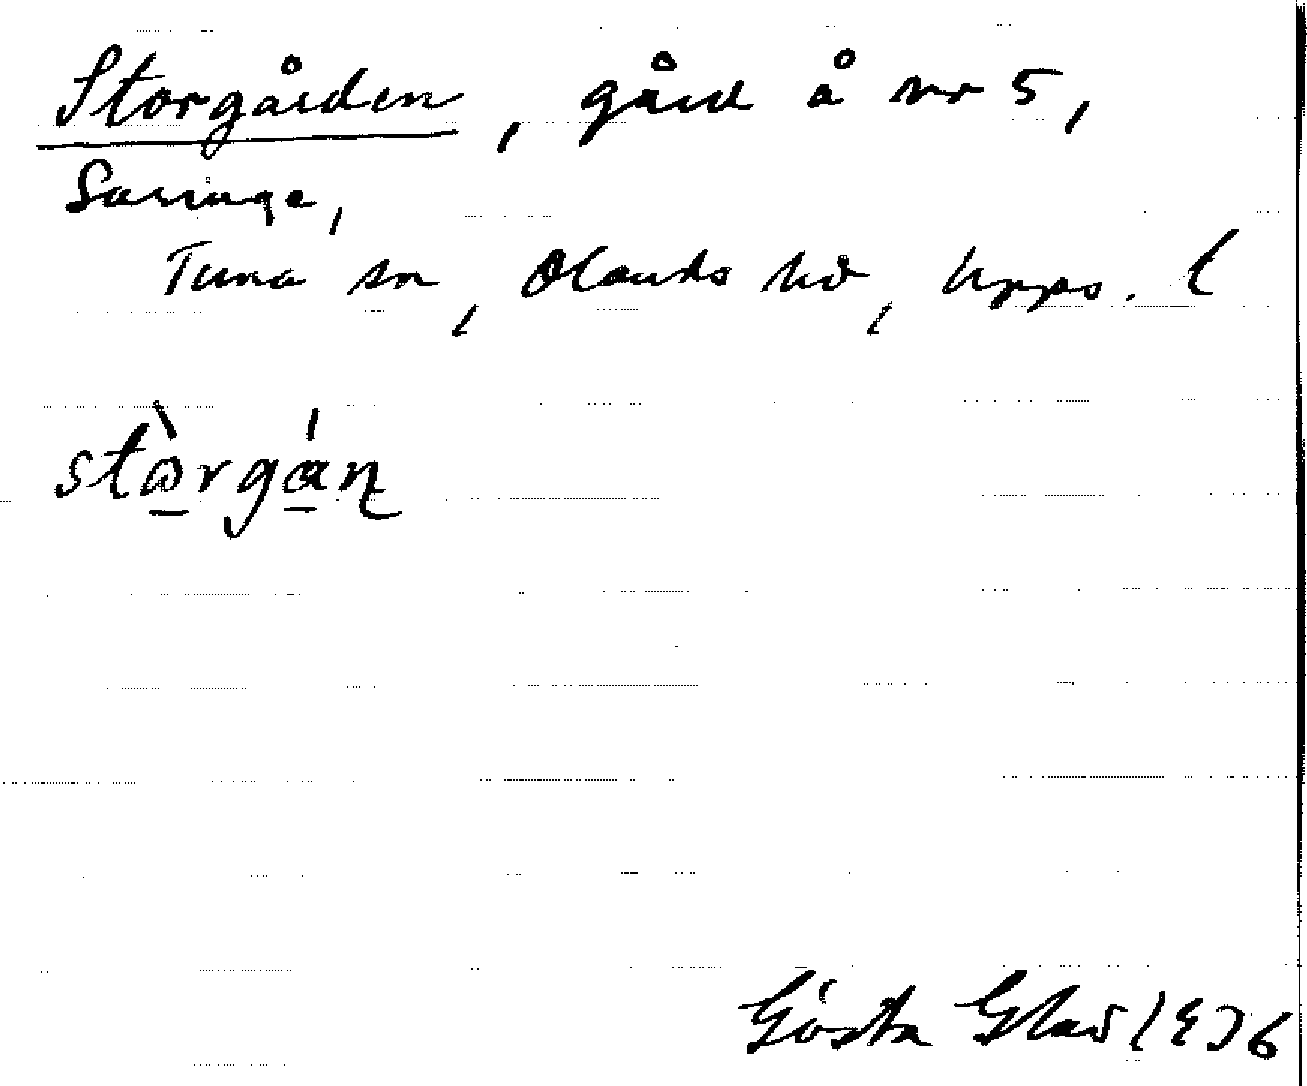 Storgården, gård å nr 5,
Saringe,
Tuna sn, Olands hd, Upps. l
Gösta Glas 1976